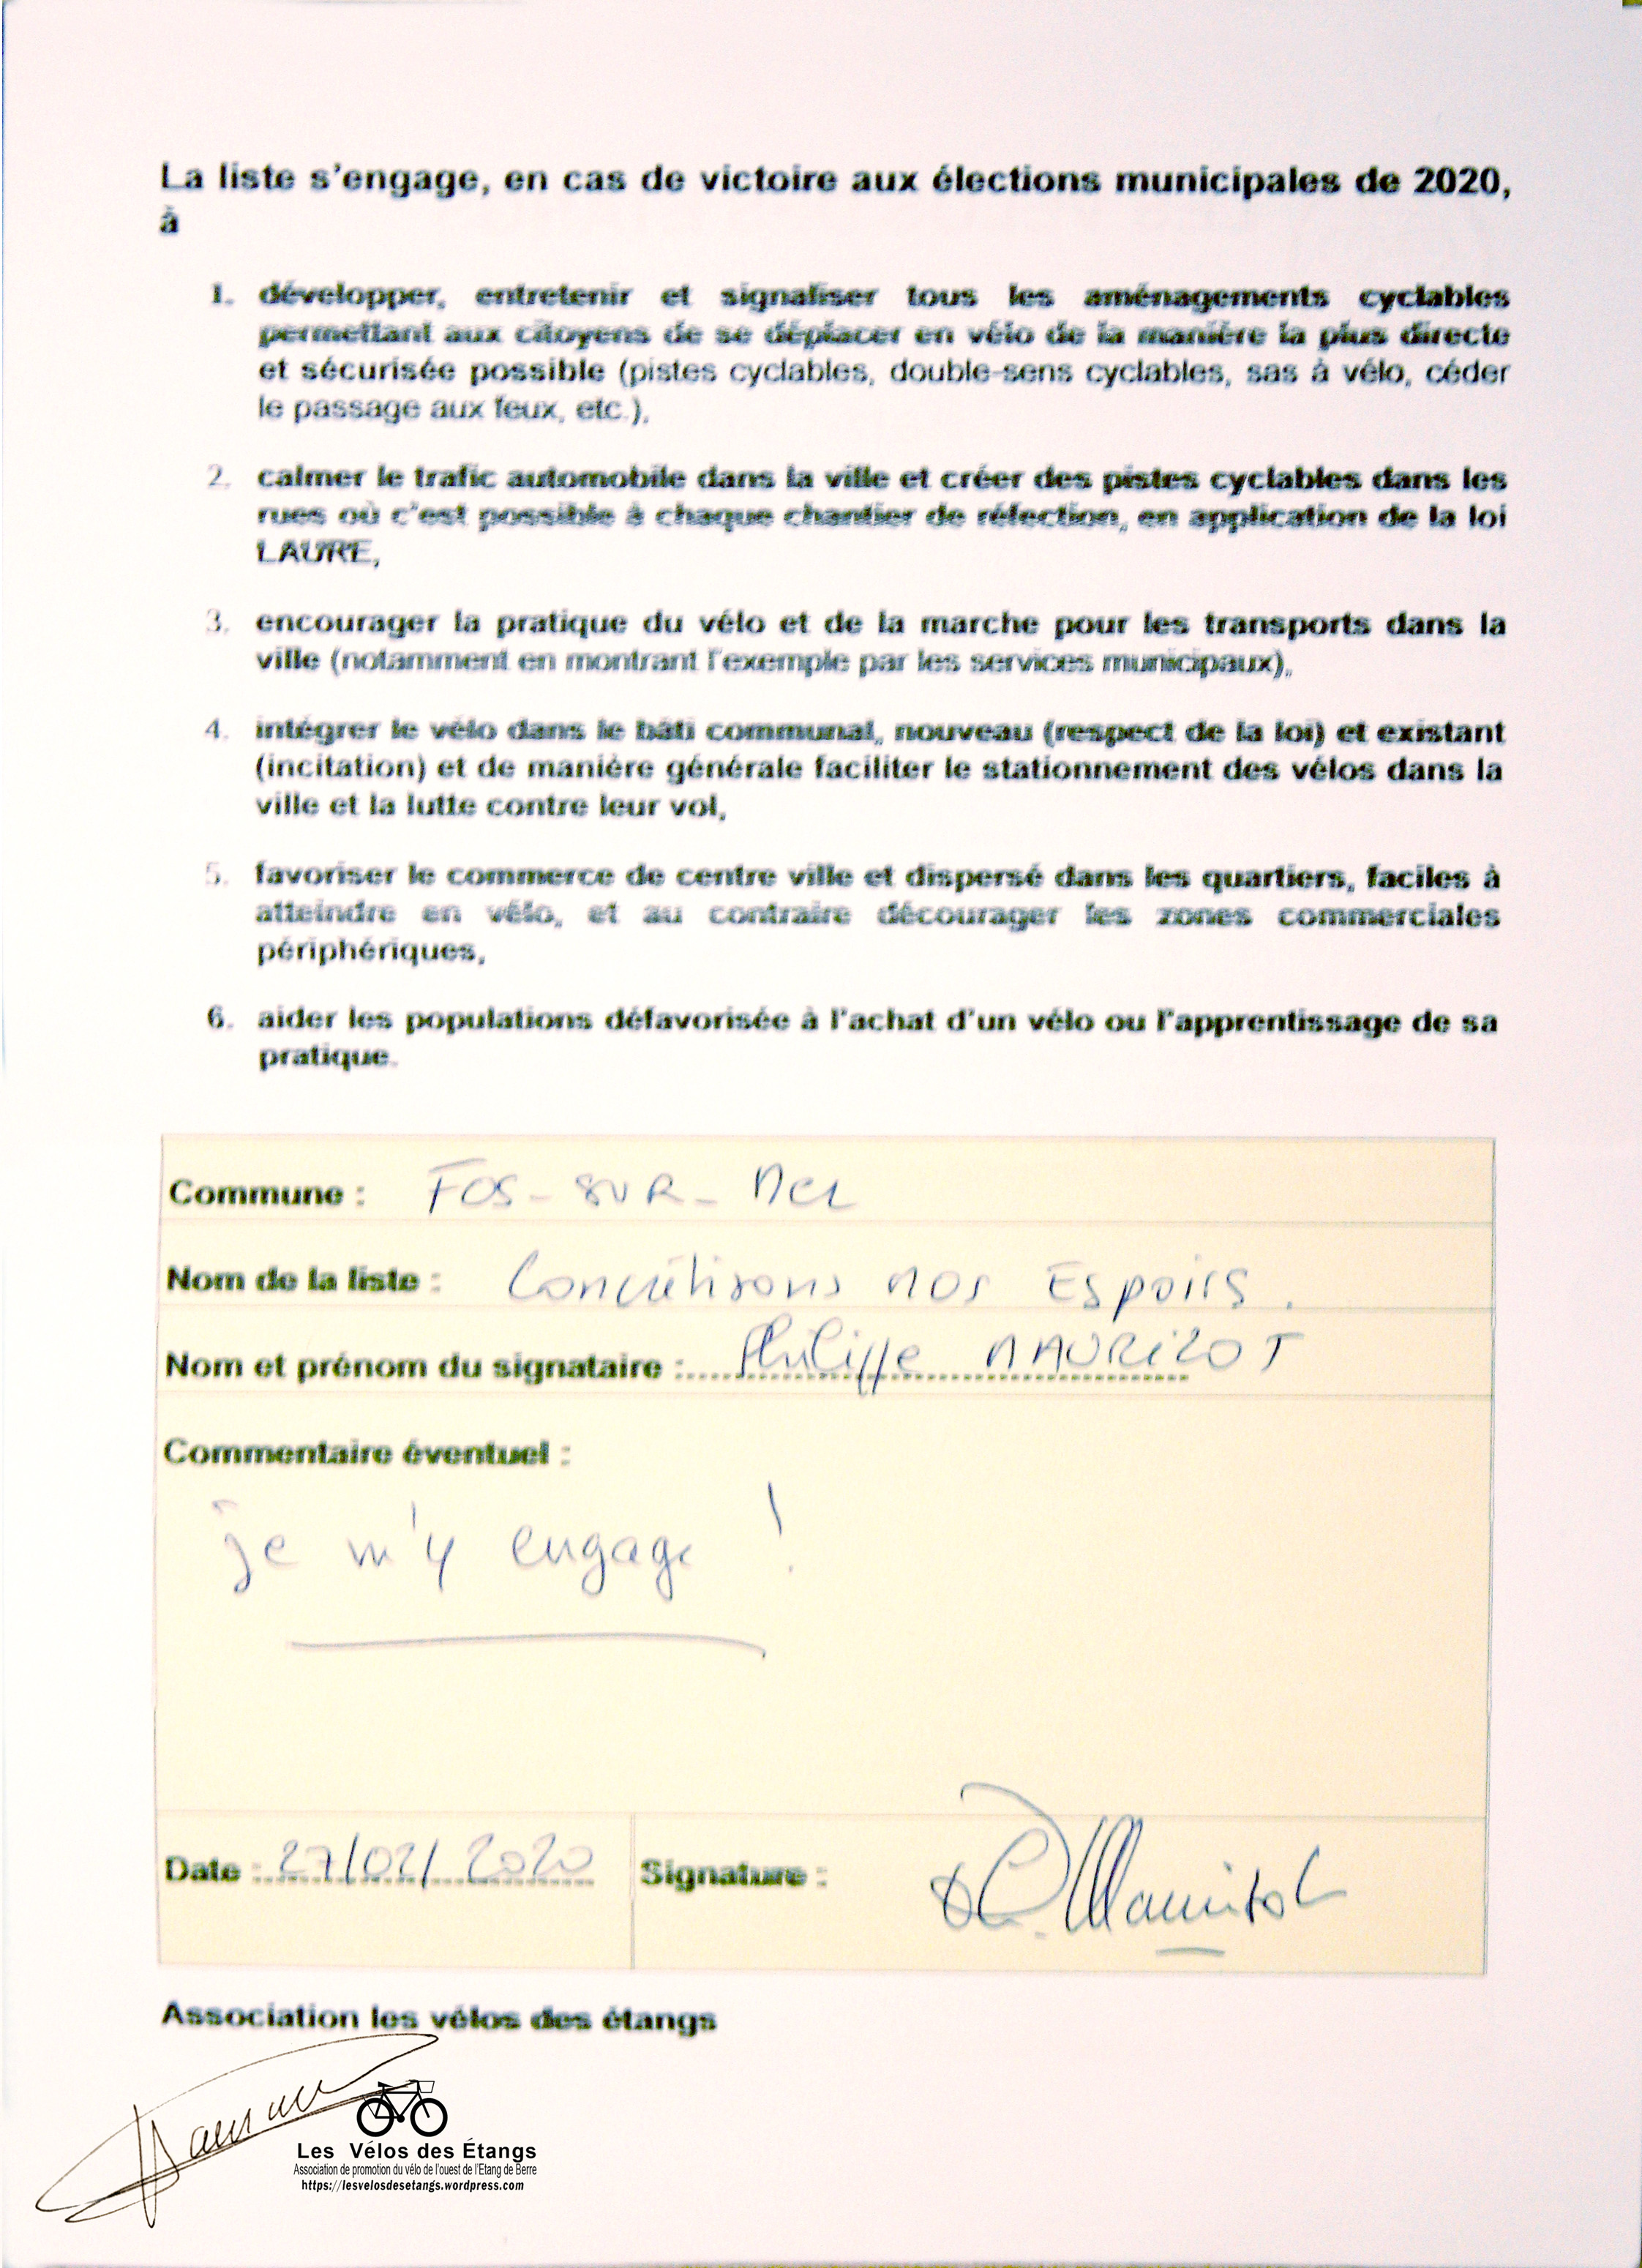 La liste s'engage, en cas de victoire aux élections municipales de 2020,
à
1. développer, entretenir et signaliser tous les aménagements cyclables
permettant aux citoyens de se déplacer en vélo de la manière la plus directe
et sécurisée possible (pistes cyclables, double-sens cyclables, sas à vélo, céder
le passage aux feux, etc.),
2. calmer le trafic automobile dans la ville et créer des pistes cyclables dans les
rues où c'est possible à chaque chantier de réfection, en application de la loi
LAURE,
3. encourager la pratique du vélo et de la marche pour les transports dans la
ville (notamment en montrant l'exemple par les services municipaux),
4. intégrer le vélo dans le bâti communal, nouveau (respect de la loi) et existant
(incitation) et de manière générale faciliter le stationnement des vélos dans la
ville et la lutte contre leur vol,
5. favoriser le commerce de centre ville et dispersé dans les quartiers, faciles à
atteindre en vélo, et au contraire décourager les zones commerciales
périphériques,
6. aider les populations défavorisée à l'achat d'un vélo ou l'apprentissage de sa
pratique.
Commune : FOS-SUR-MER
Nom de la liste : Concrétisons nos Espoirs.
Nom et prénom du signataire : Philippe MAURIZOT
Commentaire éventuel :
je m'y engage !
Date : 27/02/2020 Signature : Maurizot
Association les vélos des étangs
Les Vélos des Étangs
Association de promotion du vélo de l'ouest de l'Etang de Berre
https://lesvelosdesetangs.wordpress.com